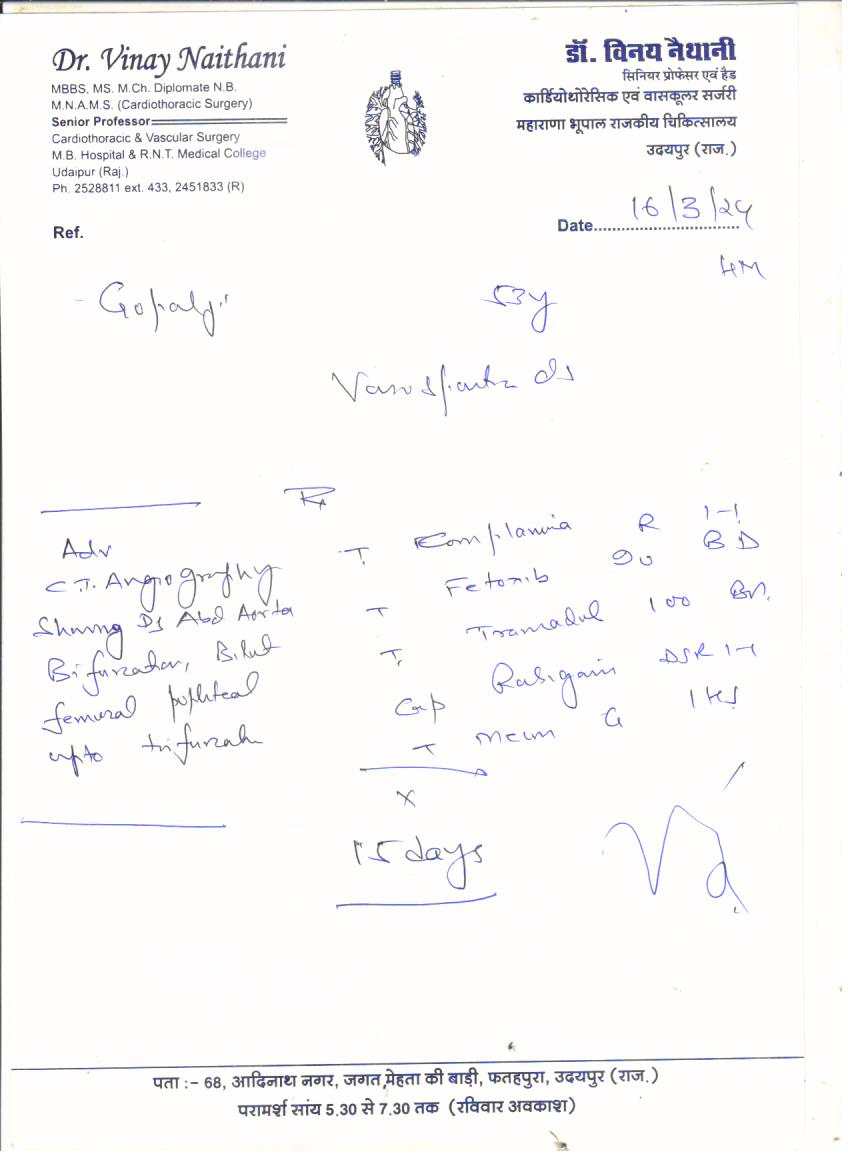 Dr. Vinay Naithani
MBBS, MS. M.Ch. Diplomate N.B.
M.N.A.M.S. (Cardiothoracic Surgery)
Senior Professor
Cardiothoracic & Vascular Surgery
M.B. Hospital & R.N.T. Medical College
Udaipur (Raj.)
Ph. 2528811 ext. 433, 2451833 (R)
डॉ. विनय नैथानी
सिनियर प्रोफेसर एवं हैड
कार्डियोथोरेसिक एवं वासकूलर सर्जरी
महाराणा भूपाल राजकीय चिकित्सालय
उदयपुर (राज.)
Ref.
Date 16/3/24
Gopalji 53y
Rx
Adv
C.T. Angiography
Abd Aorta
femoral popliteal
upto
T Complamina R 1-1
90 BD
T Tramadol 100
T. DSR 1-1
Cap
T
x
15 days
पता :- 68, आदिनाथ नगर, जगत मेहता की बाड़ी, फतहपुरा, उदयपुर (राज.)
परामर्श सांय 5.30 से 7.30 तक (रविवार अवकाश)